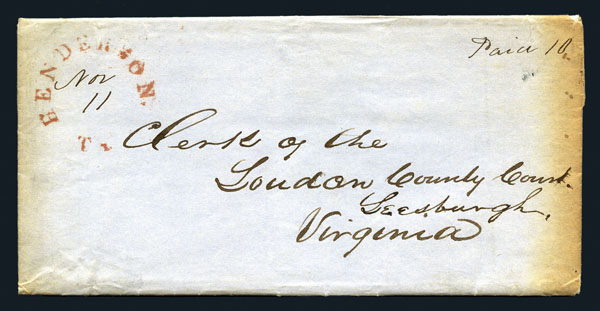 HENDERSON.
Nov
11
Tx
Paid 10
Clerk of the
Loudon County Court.
Leesburgh,
Virginia